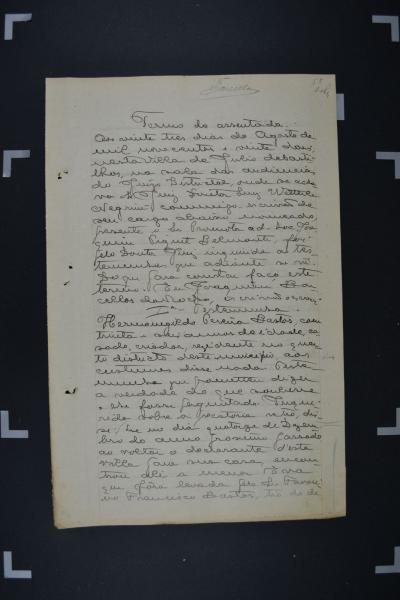 Termo de assentada.
Aos vinte tres dias de Agosto de
mil novecentos e vinte dous,
nesta villa de Julio de Casti-
lhos, na sala das audiencias
do Juizo Districtal, onde se acha-
va o Juiz Doutor Ruy
commigo escrivão de
seu cargo abaixo nomeado,
presente o Sr Promotor ad-hoc Joa-
quim Piquet Belmonte, foi
pelo Doutor Juiz inquirida a tes-
temunha que adiante se vê.
Do que para constar faço este
termo. Eu Joaquim
da Rocha, escrivão o escrevi.
1ª Testemunha.
Hermenegildo Pereira Bastos, com
trinta e annos de idade, ca-
sado, criador, residente no quar-
to districto deste municipio, aos
costumes disse nada. Teste-
munha que prometteu dizer
a verdade do que soubesse
e lhe fosse perguntado. Inque-
rida sobre a precatoria retro, dis-
se: Que no dia quatorze de Dezem-
bro do anno proximo passado
ao voltar o declarante d'esta
villa para sua casa, encon-
trou ali a menor
que fôra levada pelo Sr.
Francisco Bastos, tio do de